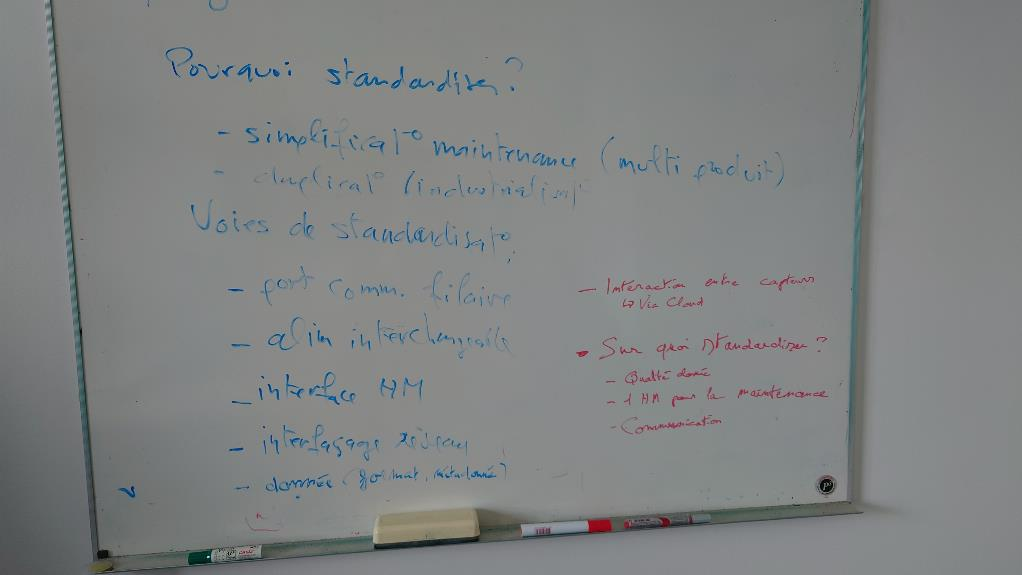 Pourquoi standardiser ?
- simplificat° maintenance (multi produit)
- duplicat° / industrialisat°
Voies de standardisat° :
- port comm. filaire
- alim interchangeable
- interface HM
- interfaçage réseau
- donnée (format, métadonnée)
- Interaction entre capteurs
↳ Via Cloud
• Sur quoi standardiser ?
- Qualité donnée
- 1 HM pour la maintenance
- Communication